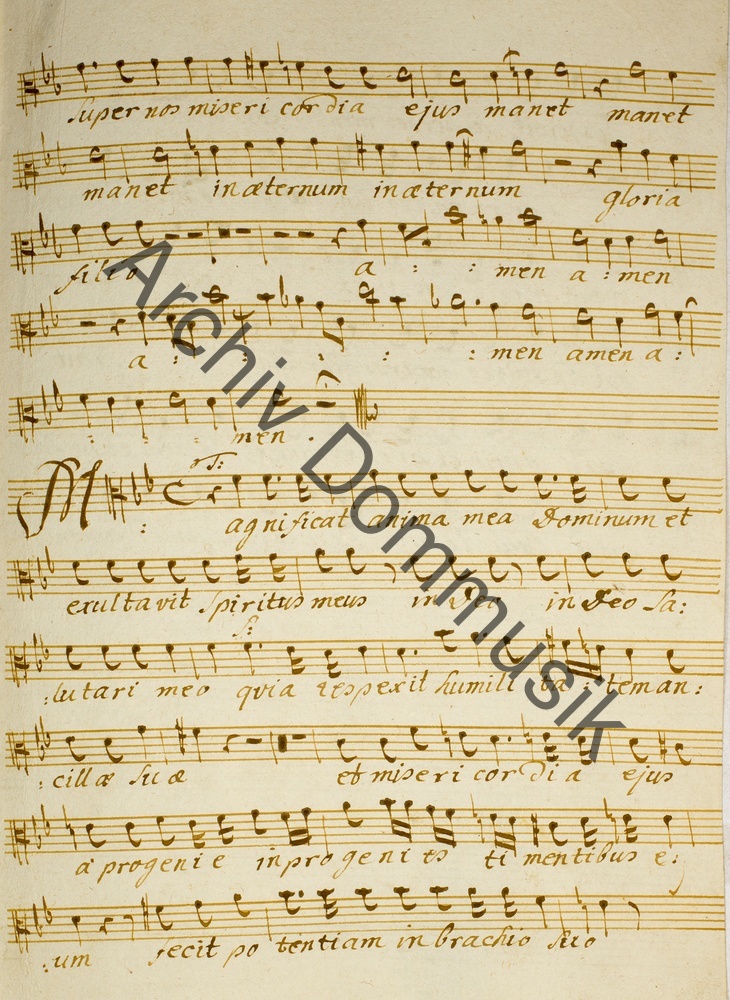 super nos miseri cordia ejus manet manet
manet in æternum in æternum gloria
filio a : : men a : men
a : : : : : men amen a :
: : : men .
T:
M : agnificat anima mea Dominum et
exultavit spiritus meus in Deo in Deo sa:
S:
:lutari meo quia respexit humili ta : tem an:
:cillæ suæ et miseri cordia ejus
a progenie in progenies timentibus e:
:um fecit potentiam in brachio suo
Archiv Dommusik